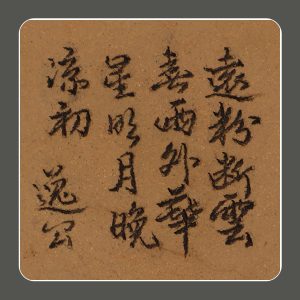 遠粉断雲
春雨外華
星明月晚
涼初 逸公